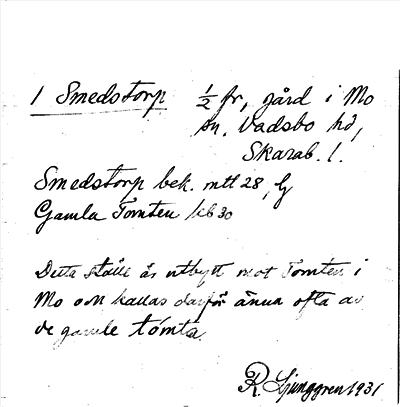 1 Smedstorp ½ fr, gård i Mo
sn. Vadsbo hd,
Skarab. l.
Smedstorp bek. mtl 28, G
Gamla Tomten kb 30
Detta ställe är utbytt mot Tomten i
Mo och kallas därför ännu ofta av
de gamle tómta.
R. Ljunggren 1931